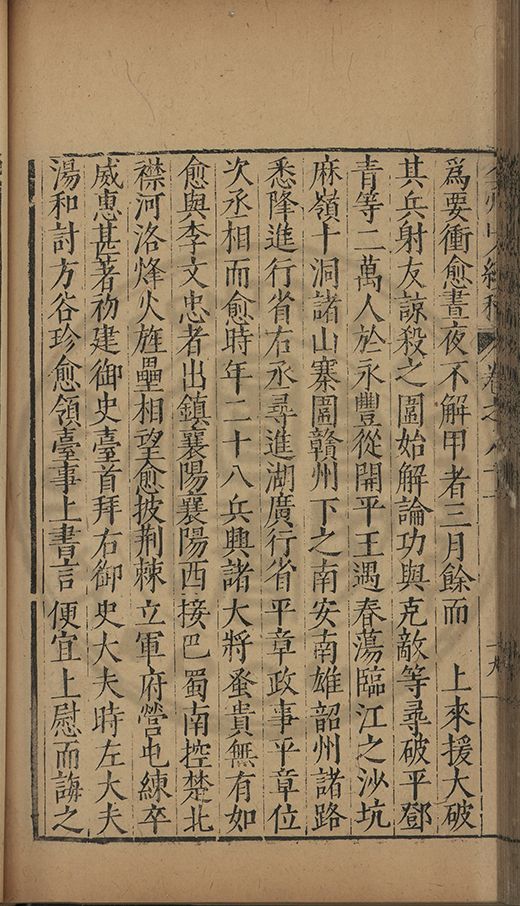 為要衝愈晝夜不解甲者三月餘而　上來援大破
其兵射友諒殺之圍始解論功與克敵等尋破平鄧
青等二萬人於永豐從開平王遇春蕩臨江之沙坑
麻嶺十洞諸山寨圍贛州下之南安南雄韶州諸路
悉降進行省右丞尋進湖廣行省平章政事平章位
次丞相而愈時年二十八兵興諸大將蚤貴無有如
愈與李文忠者出鎮襄陽襄陽西接巴蜀南控楚北
襟河洛烽火旌壘相望愈披荆棘立軍府營屯練卒
威惠甚著初建御史臺首拜右御史大夫時左大夫
湯和討方谷珍愈領臺事上書言　便宜上慰而誨之
卷之八十
十九